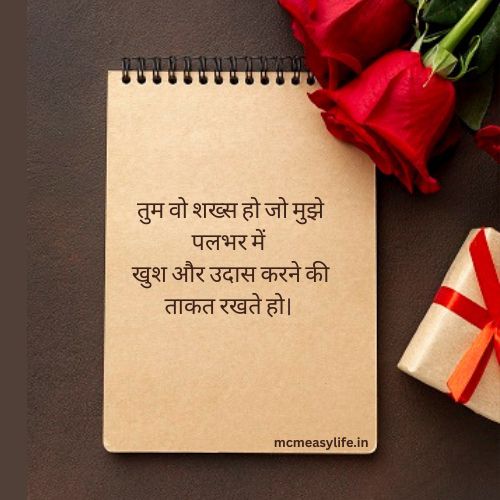 तुम वो शख्स हो जो मुझे
पलभर में
खुश और उदास करने की
ताकत रखते हो।
mcmeasylife.in